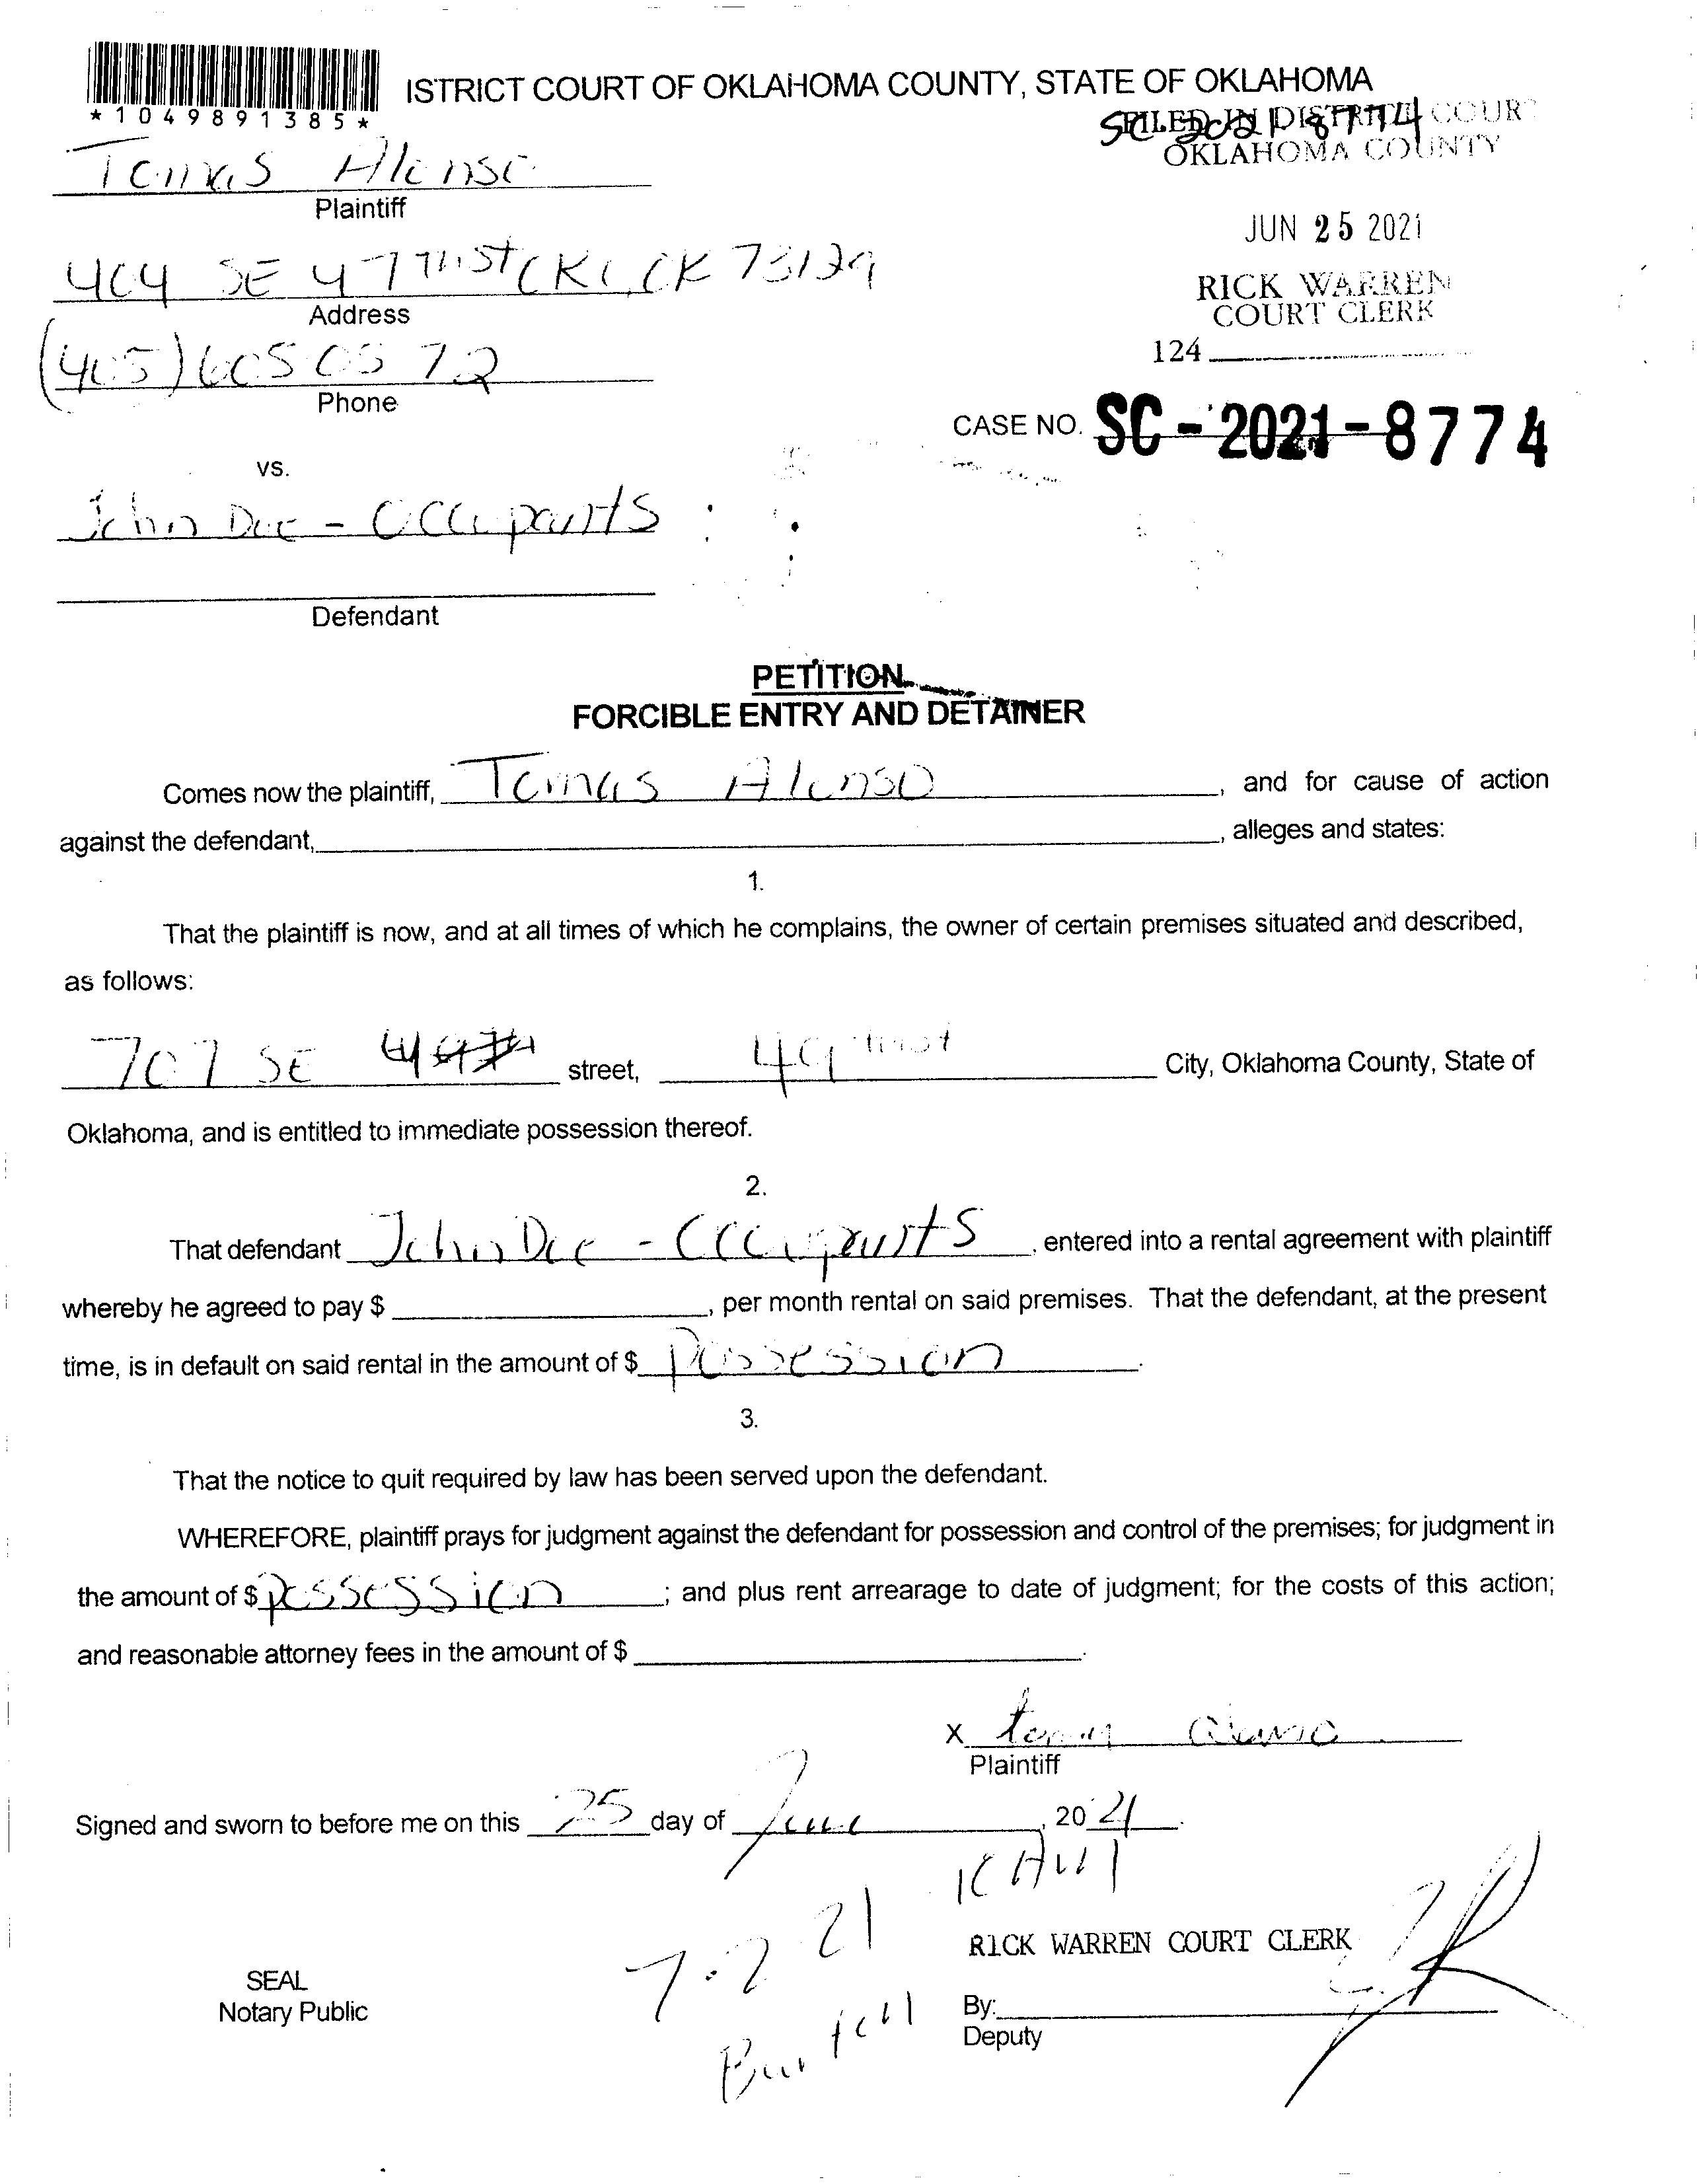 ISTRICT COURT OF OKLAHOMA COUNTY, STATE OF OKLAHOMA
*1049891385*
SC-2021-8774
FILED IN DISTRICT COURT
OKLAHOMA COUNTY
Tomas Alonso
Plaintiff
JUN 25 2021
404 SE 47TH St OKC, OK 73129
Address
RICK WARREN
COURT CLERK
(405) 605 05 72
Phone
124
CASE NO. SC-2021-8774
vs.
John Doe - Occupants
Defendant
PETITION
FORCIBLE ENTRY AND DETAINER
Comes now the plaintiff, Tomas Alonso, and for cause of action
against the defendant, , alleges and states:
1.
That the plaintiff is now, and at all times of which he complains, the owner of certain premises situated and described,
as follows:
707 SE street, 49 City, Oklahoma County, State of
Oklahoma, and is entitled to immediate possession thereof.
2.
That defendant John Doe - Occupants, entered into a rental agreement with plaintiff
whereby he agreed to pay $ , per month rental on said premises. That the defendant, at the present
time, is in default on said rental in the amount of $ Possession.
3.
That the notice to quit required by law has been served upon the defendant.
WHEREFORE, plaintiff prays for judgment against the defendant for possession and control of the premises; for judgment in
the amount of $ possession; and plus rent arrearage to date of judgment; for the costs of this action;
and reasonable attorney fees in the amount of $ .
X tomas alonso
Plaintiff
Signed and sworn to before me on this 25 day of June, 20 21.
7-7 21
RICK WARREN COURT CLERK
SEAL
Notary Public
By:
Deputy